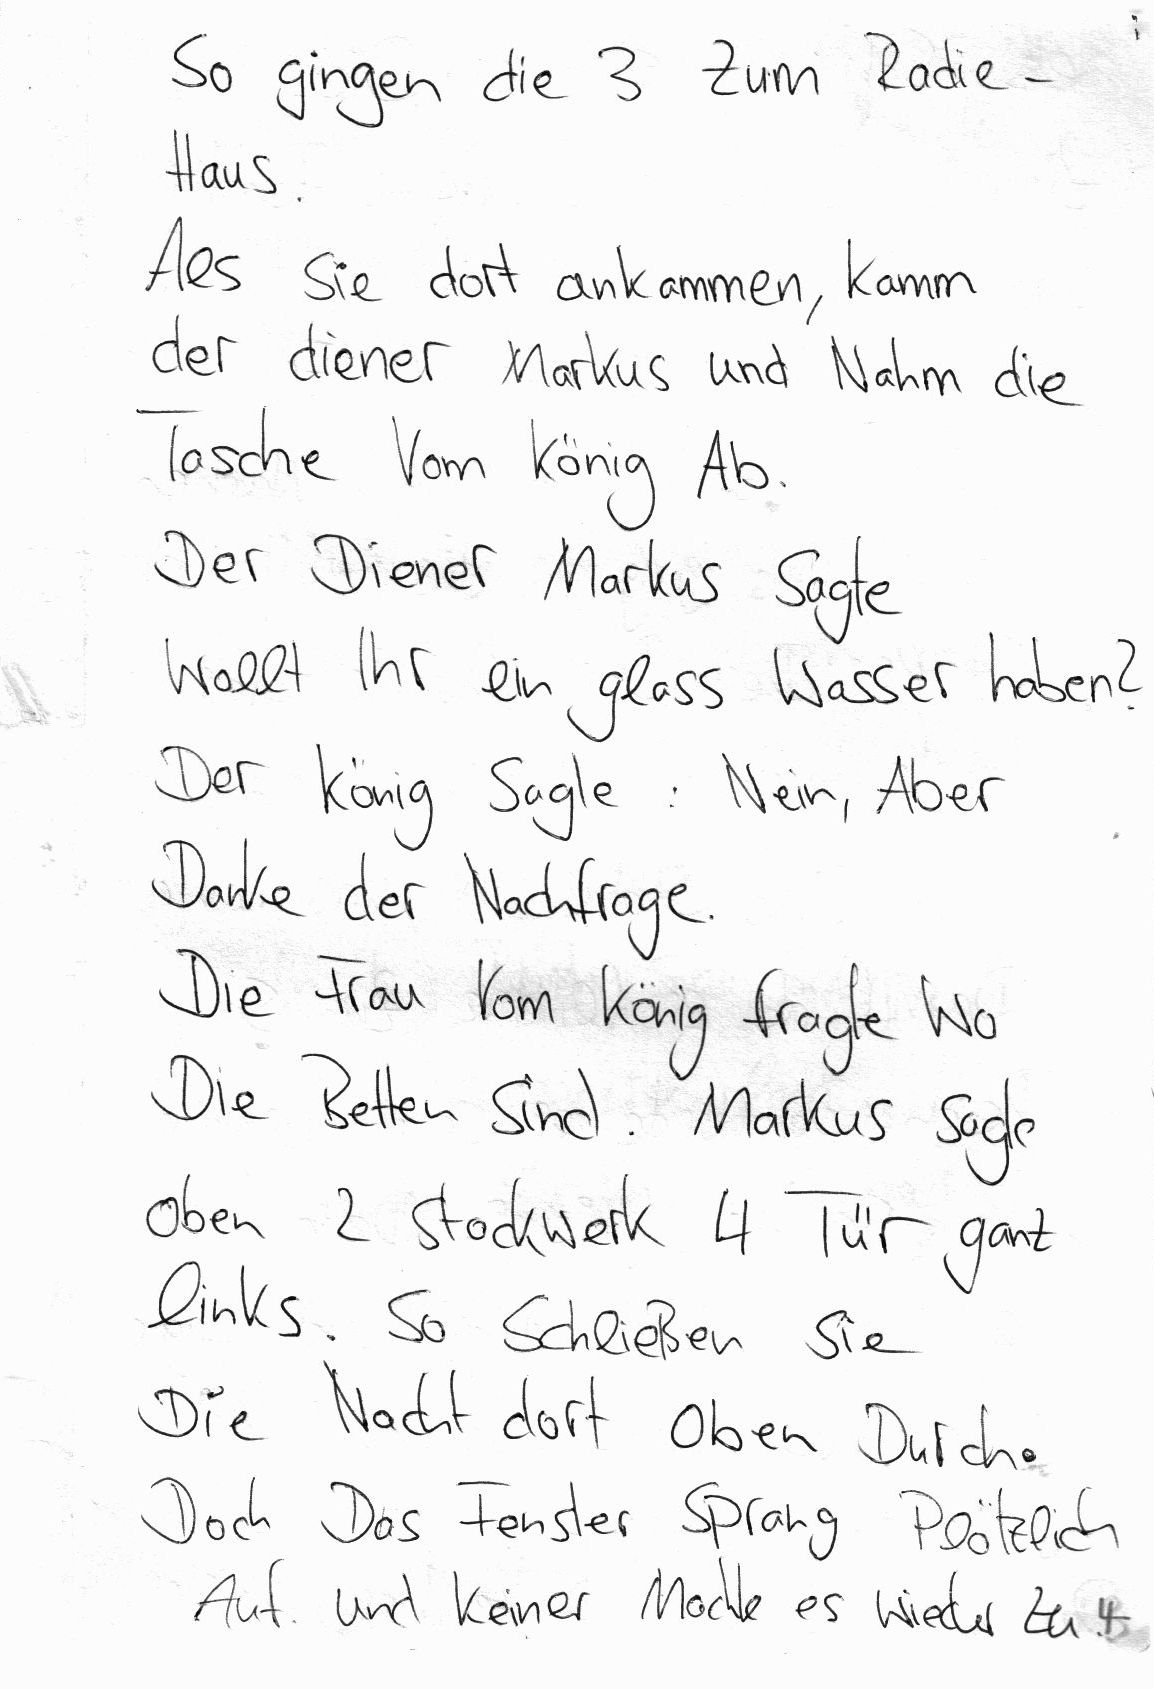 So gingen die 3 Zum Radie-
Haus.
Als Sie dort ankammen, kamm
der diener Markus und Nahm die
Tasche Vom König Ab.
Der Diener Markus Sagte
Wollt Ihr ein glass Wasser haben?
Der König Sagte : Nein, Aber
Danke der Nachfrage.
Die Frau Vom König fragte Wo
Die Betten Sind. Markus Sagte
oben 2 Stockwerk 4 Tür ganz
links. So Schließen sie
Die Nacht dort Oben Durch.
Doch Das Fenster Sprang Plötzlich
Auf. und Keiner Machte es wieder zu